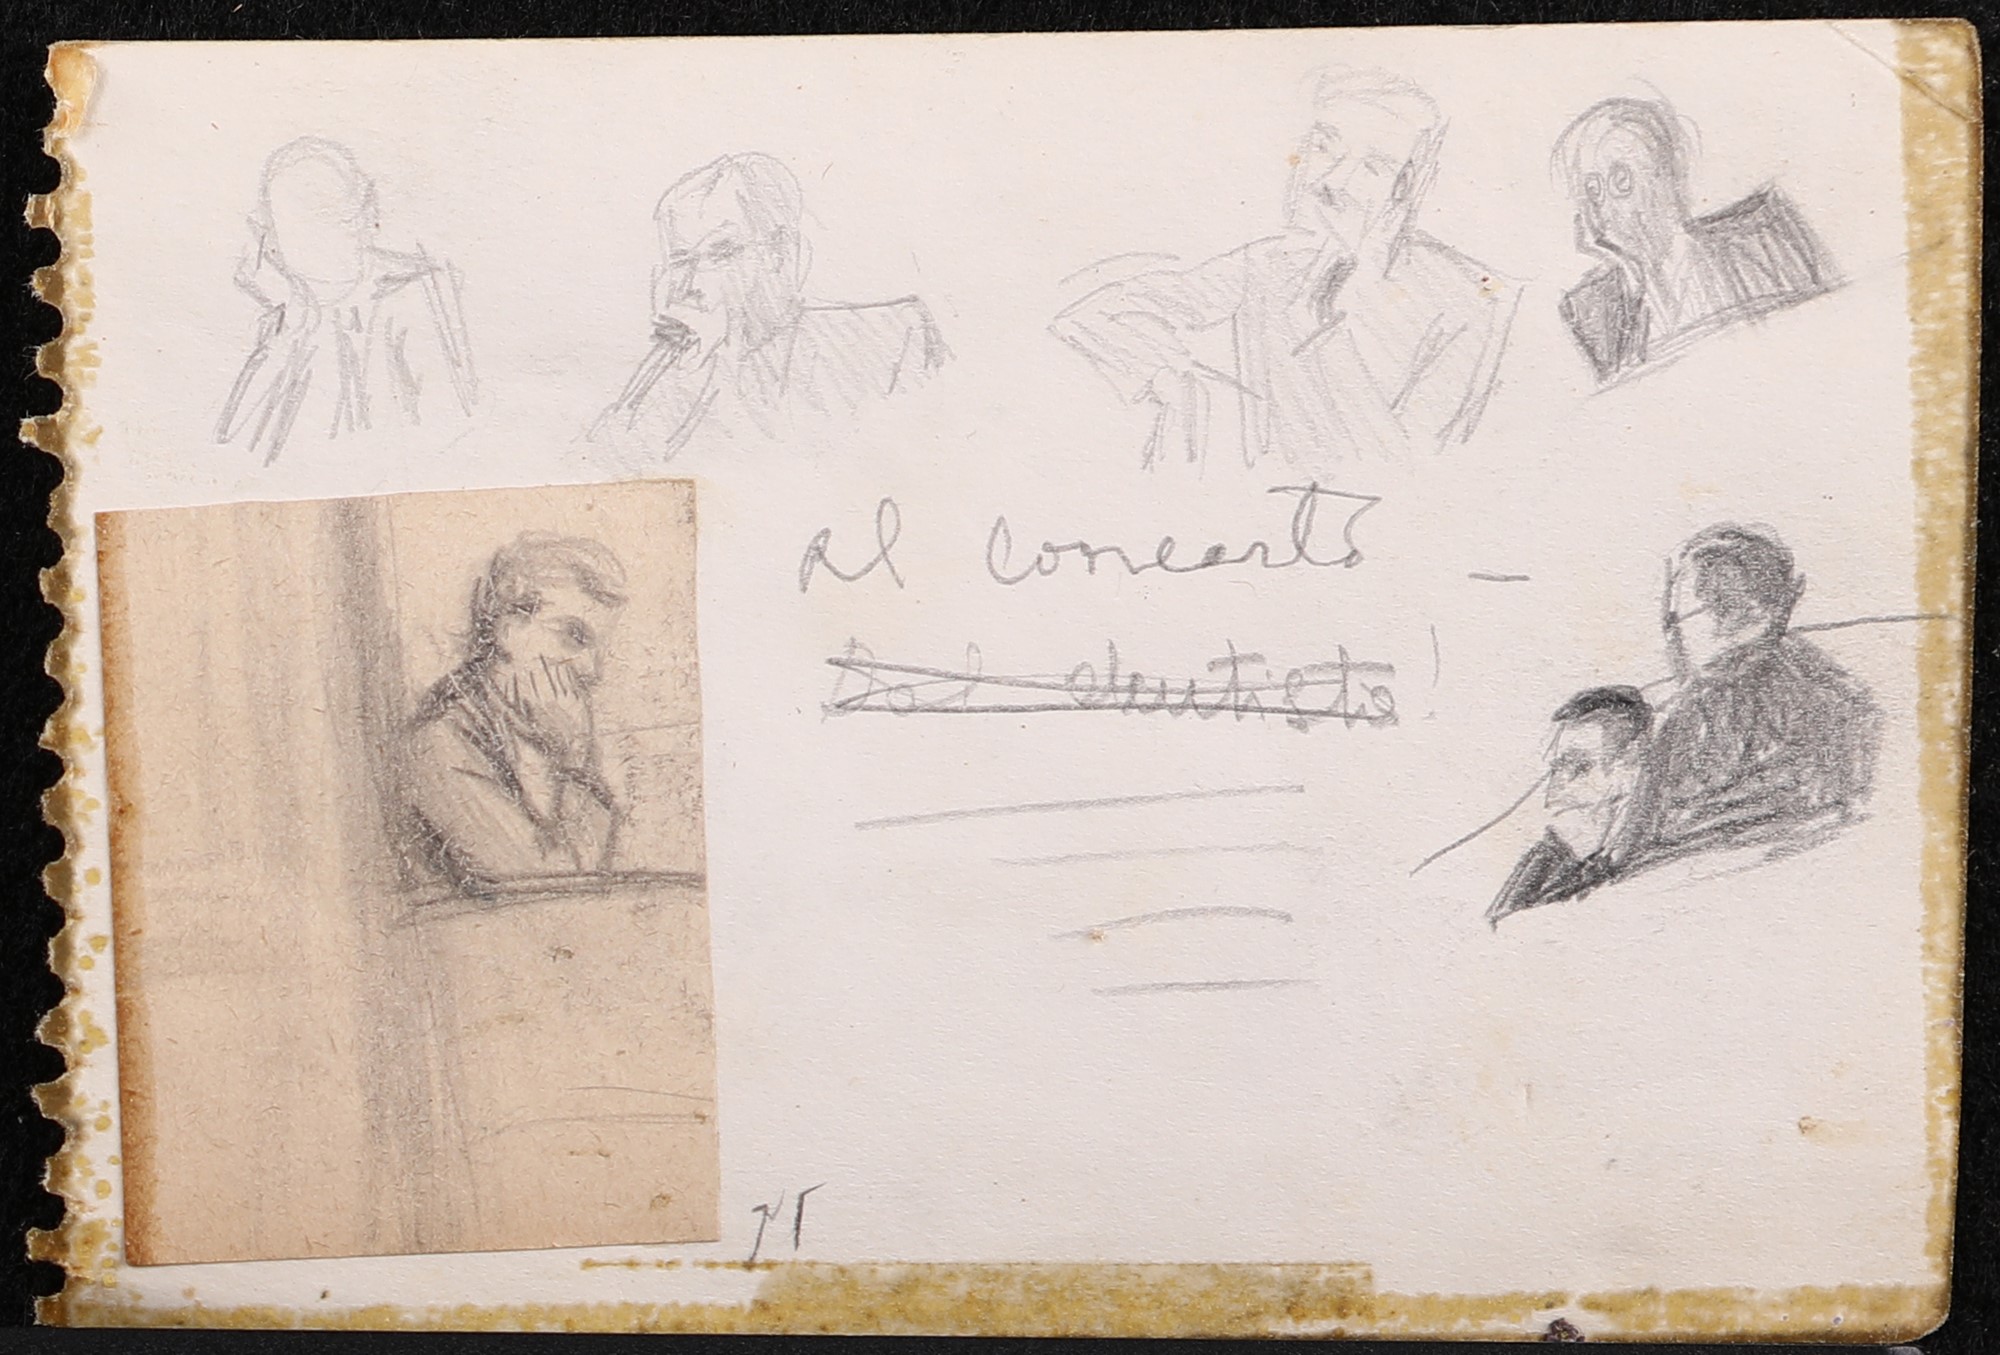 Al concerto –
Dal dentista!